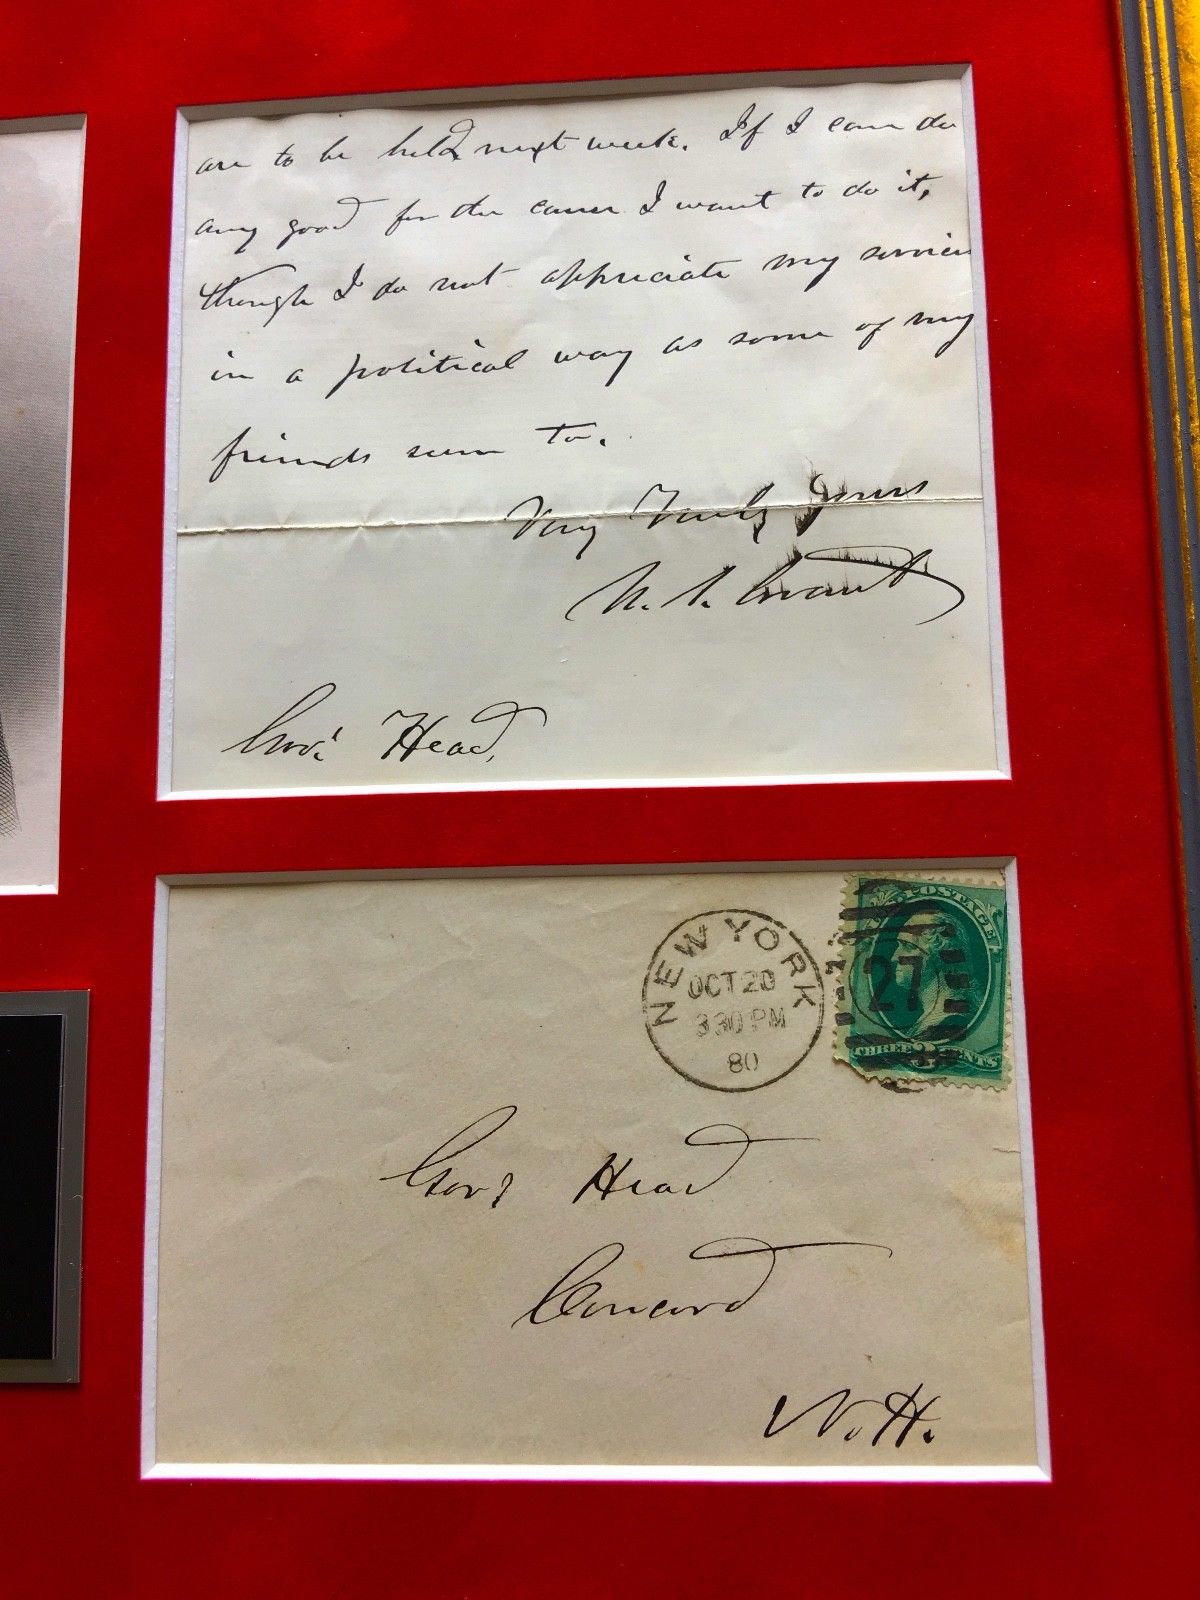 are to be held next week. If I can do
any good for the cause I want to do it,
though I do not appreciate my services
in a political way as some of my
friends seem to.
Very Truly yours
U. S. Grant
Gov. Head,
NEW YORK
OCT 20
330 PM
80
POSTAGE
27
THREE 3 CENTS
Gov. Head
Concord
N. H.